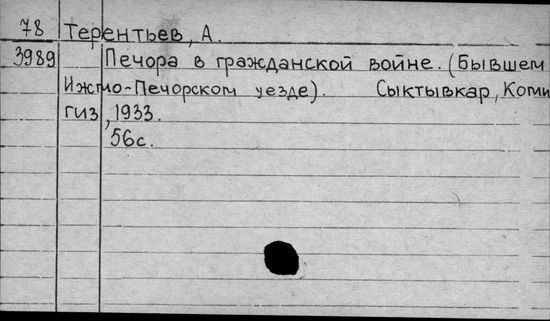 78 Терентьев, А.
3989 Печора в гражданской войне. (Бывшем
Ижмо-Печорском уезде). Сыктывкар, Коми
гиз, 1933.
56с.